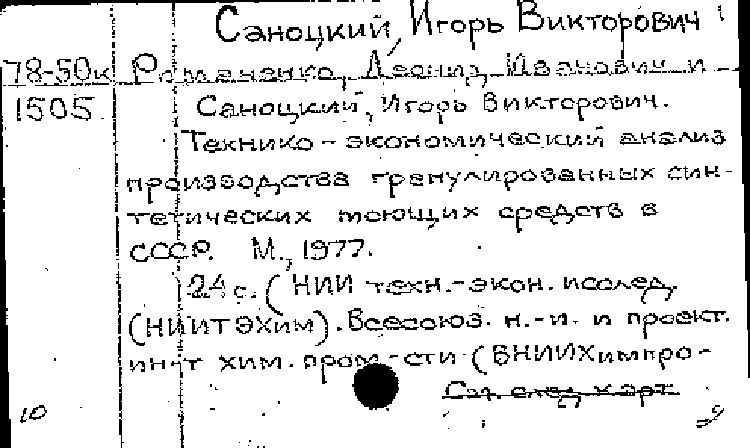 Саноцкий, Игорь Викторович
78-50к Романенко, Леонид Иванович и
1505 Саноцкий, Игорь Викторович.
Технико-экономический анализ
производства гранулированных син-
тетических моющих средств в
СССР. М., 1977.
24 с. (НИИ техн.-экон. исслед.
(НИИТЭХИМ). Всесоюз. н.-и. и проект.
ин-т хим. пром-сти (ВНИИХимпро-
См. след. карт.
10